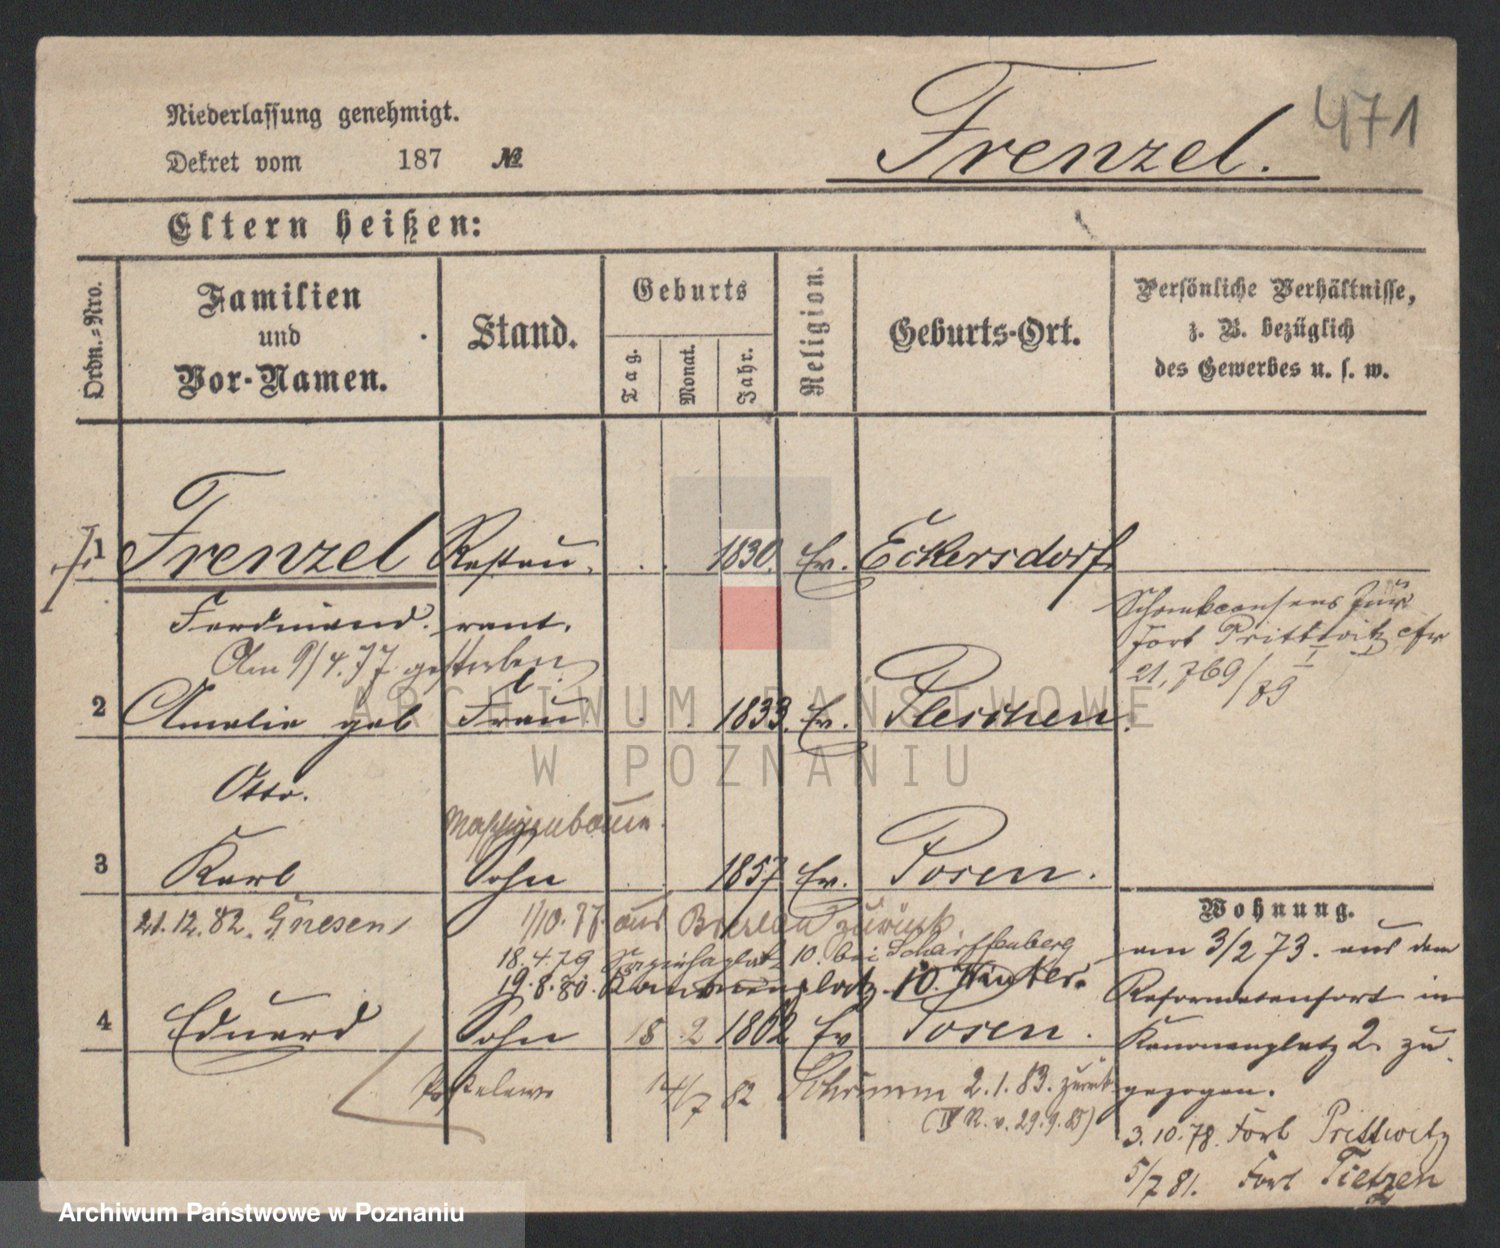 471
Frenzel.
Niederlassung genehmigt.
Dekret vom 187 №
Eltern heißen:
Ordn.-Nro.
Familien
und
Vor-Namen.
Stand.
Geburts
Tag.
Monat.
Jahr.
Religion.
Geburts-Ort.
Persönliche Verhältnisse,
z. B. bezüglich
des Gewerbes u. s. w.
1 Frenzel Restau- 1830. Ev. Eckersdorf
Ferdinand. rant.
Am 9/4.77 gestorben
Schankconsens für
Fort Prittwitz cfr
21,769/79
2 Amalie geb Frau 1833. Ev. Pleschen.
Otto.
Maschinenbauer.
3 Karl Sohn 1857 Ev. Posen.
21.12.82. Gnesen
1/10.77. aus Breslau zurück.
18.4.79 10. bei Scharffenberg
19.8.80. Kanonenplatz 10. Winkler.
4 Eduard Sohn 18 2 1862 Ev Posen.
14/7 82 Schrimm 2.1.83. zurück
(IV R. v. 29.9.85)
Wohnung.
am 3/2 73. aus dem
Reformatenfort in
Kanonenplatz 2 zu-
gezogen.
3.10.78. Fort Prittwitz
5/7 81. Fort Tietzen
ARCHIWUM PAŃSTWOWE
W POZNANIU
Archiwum Państwowe w Poznaniu